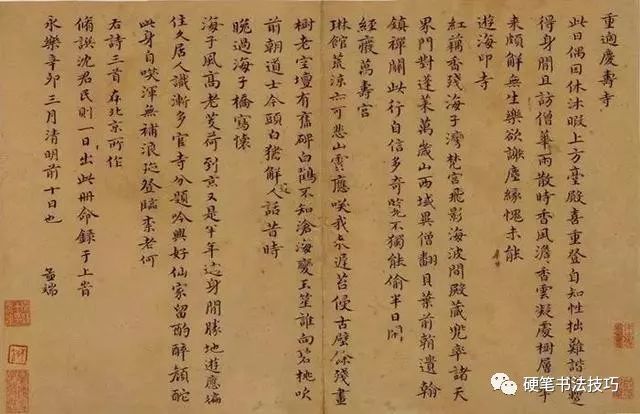 重過慶壽寺
此日偶因休沐暇上方臺殿喜重登自知性拙難諧
得身閒且訪僧華雨散時香風澹香雲凝處樹層
來頗解無生樂欲謝塵緣愧未能
遊海印寺
紅藕香殘海子灣梵宮飛影海波間殿藏兜率諸天
界門對蓬萊萬歲山西域異僧翻貝葉前朝遺翰
鎮禪關此行自信多奇不獨能偷半日閒
經廢萬壽宮
琳館荒涼亦可悲山雲應笑我來遲苔侵古壁餘殘畫
樹老空壇有舊碑白鶴不知滄海變玉笙誰向碧桃吹
前朝道士今頭白猶解人話昔時
晚過海子橋寫懷
海子風高老芰荷到京又是半年過身閒勝地遊應遍
住久居人識漸多官寺分題吟興好仙家留酌醉顏酡
此身自笑渾無補浪跡登臨柰老何
右詩三首在北京所作
脩譔沈君民則一日出此冊命錄于上旹
永樂辛卯三月清明前十日也
孟端
硬笔书法技巧